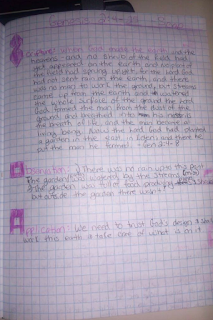 Scripture: When God made the
heavens and no shrub of the field had
yet appeared on the earth and no plant of
the field had sprung up yet, for the Lord God
had not sent rain on the earth and there
was no man to work the ground, but streams
came up from the earth and watered
the whole surface of the ground the Lord
God formed the man from the dust of the
ground and breathed into his
the breath of life, and the man became a
living being. Now the Lord God had planted
a garden in the east in Eden and there he
put the man he formed. - Gen 2:
There was no rain until this point
The garden was watered by the streams
the garden was full of food producing
but outside the garden there wasn't
Application: We need to trust God's design &
work this earth & take care of what's on it